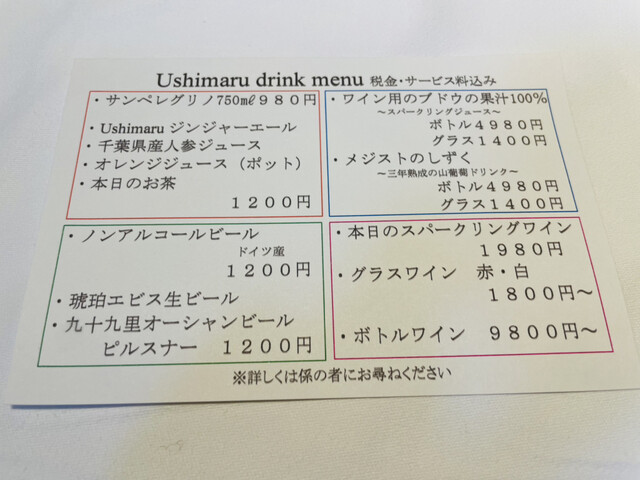 Ushimaru drink menu 税金・サービス料込み
・サンペレグリノ750㎖980円
・Ushimaru ジンジャーエール
・千葉県産人参ジュース
・オレンジジュース（ポット）
・本日のお茶
1200円
・ワイン用のブドウの果汁100%
～スパークリングジュース～
ボトル4980円
グラス1400円
・メジストのしずく
～三年熟成の山葡萄ドリンク～
ボトル4980円
グラス1400円
・ノンアルコールビール
ドイツ産
1200円
・琥珀エビス生ビール
・九十九里オーシャンビール
ピルスナー 1200円
・本日のスパークリングワイン
1980円
・グラスワイン 赤・白
1800円～
・ボトルワイン 9800円～
※詳しくは係の者にお尋ねください